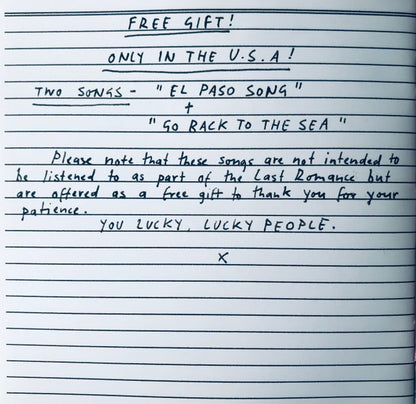 FREE GIFT!
ONLY IN THE U.S.A!
TWO SONGS - "EL PASO SONG"
+
"GO BACK TO THE SEA"
Please note that these songs are not intended to
be listened to as part of the Last Romance but
are offered as a free gift to thank you for your
patience.
YOU LUCKY, LUCKY PEOPLE.
X